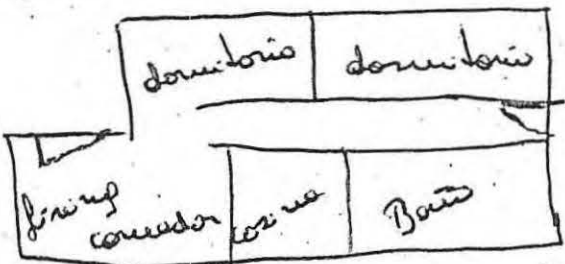 dormitorio dormitorio
living
comedor cocina Baño